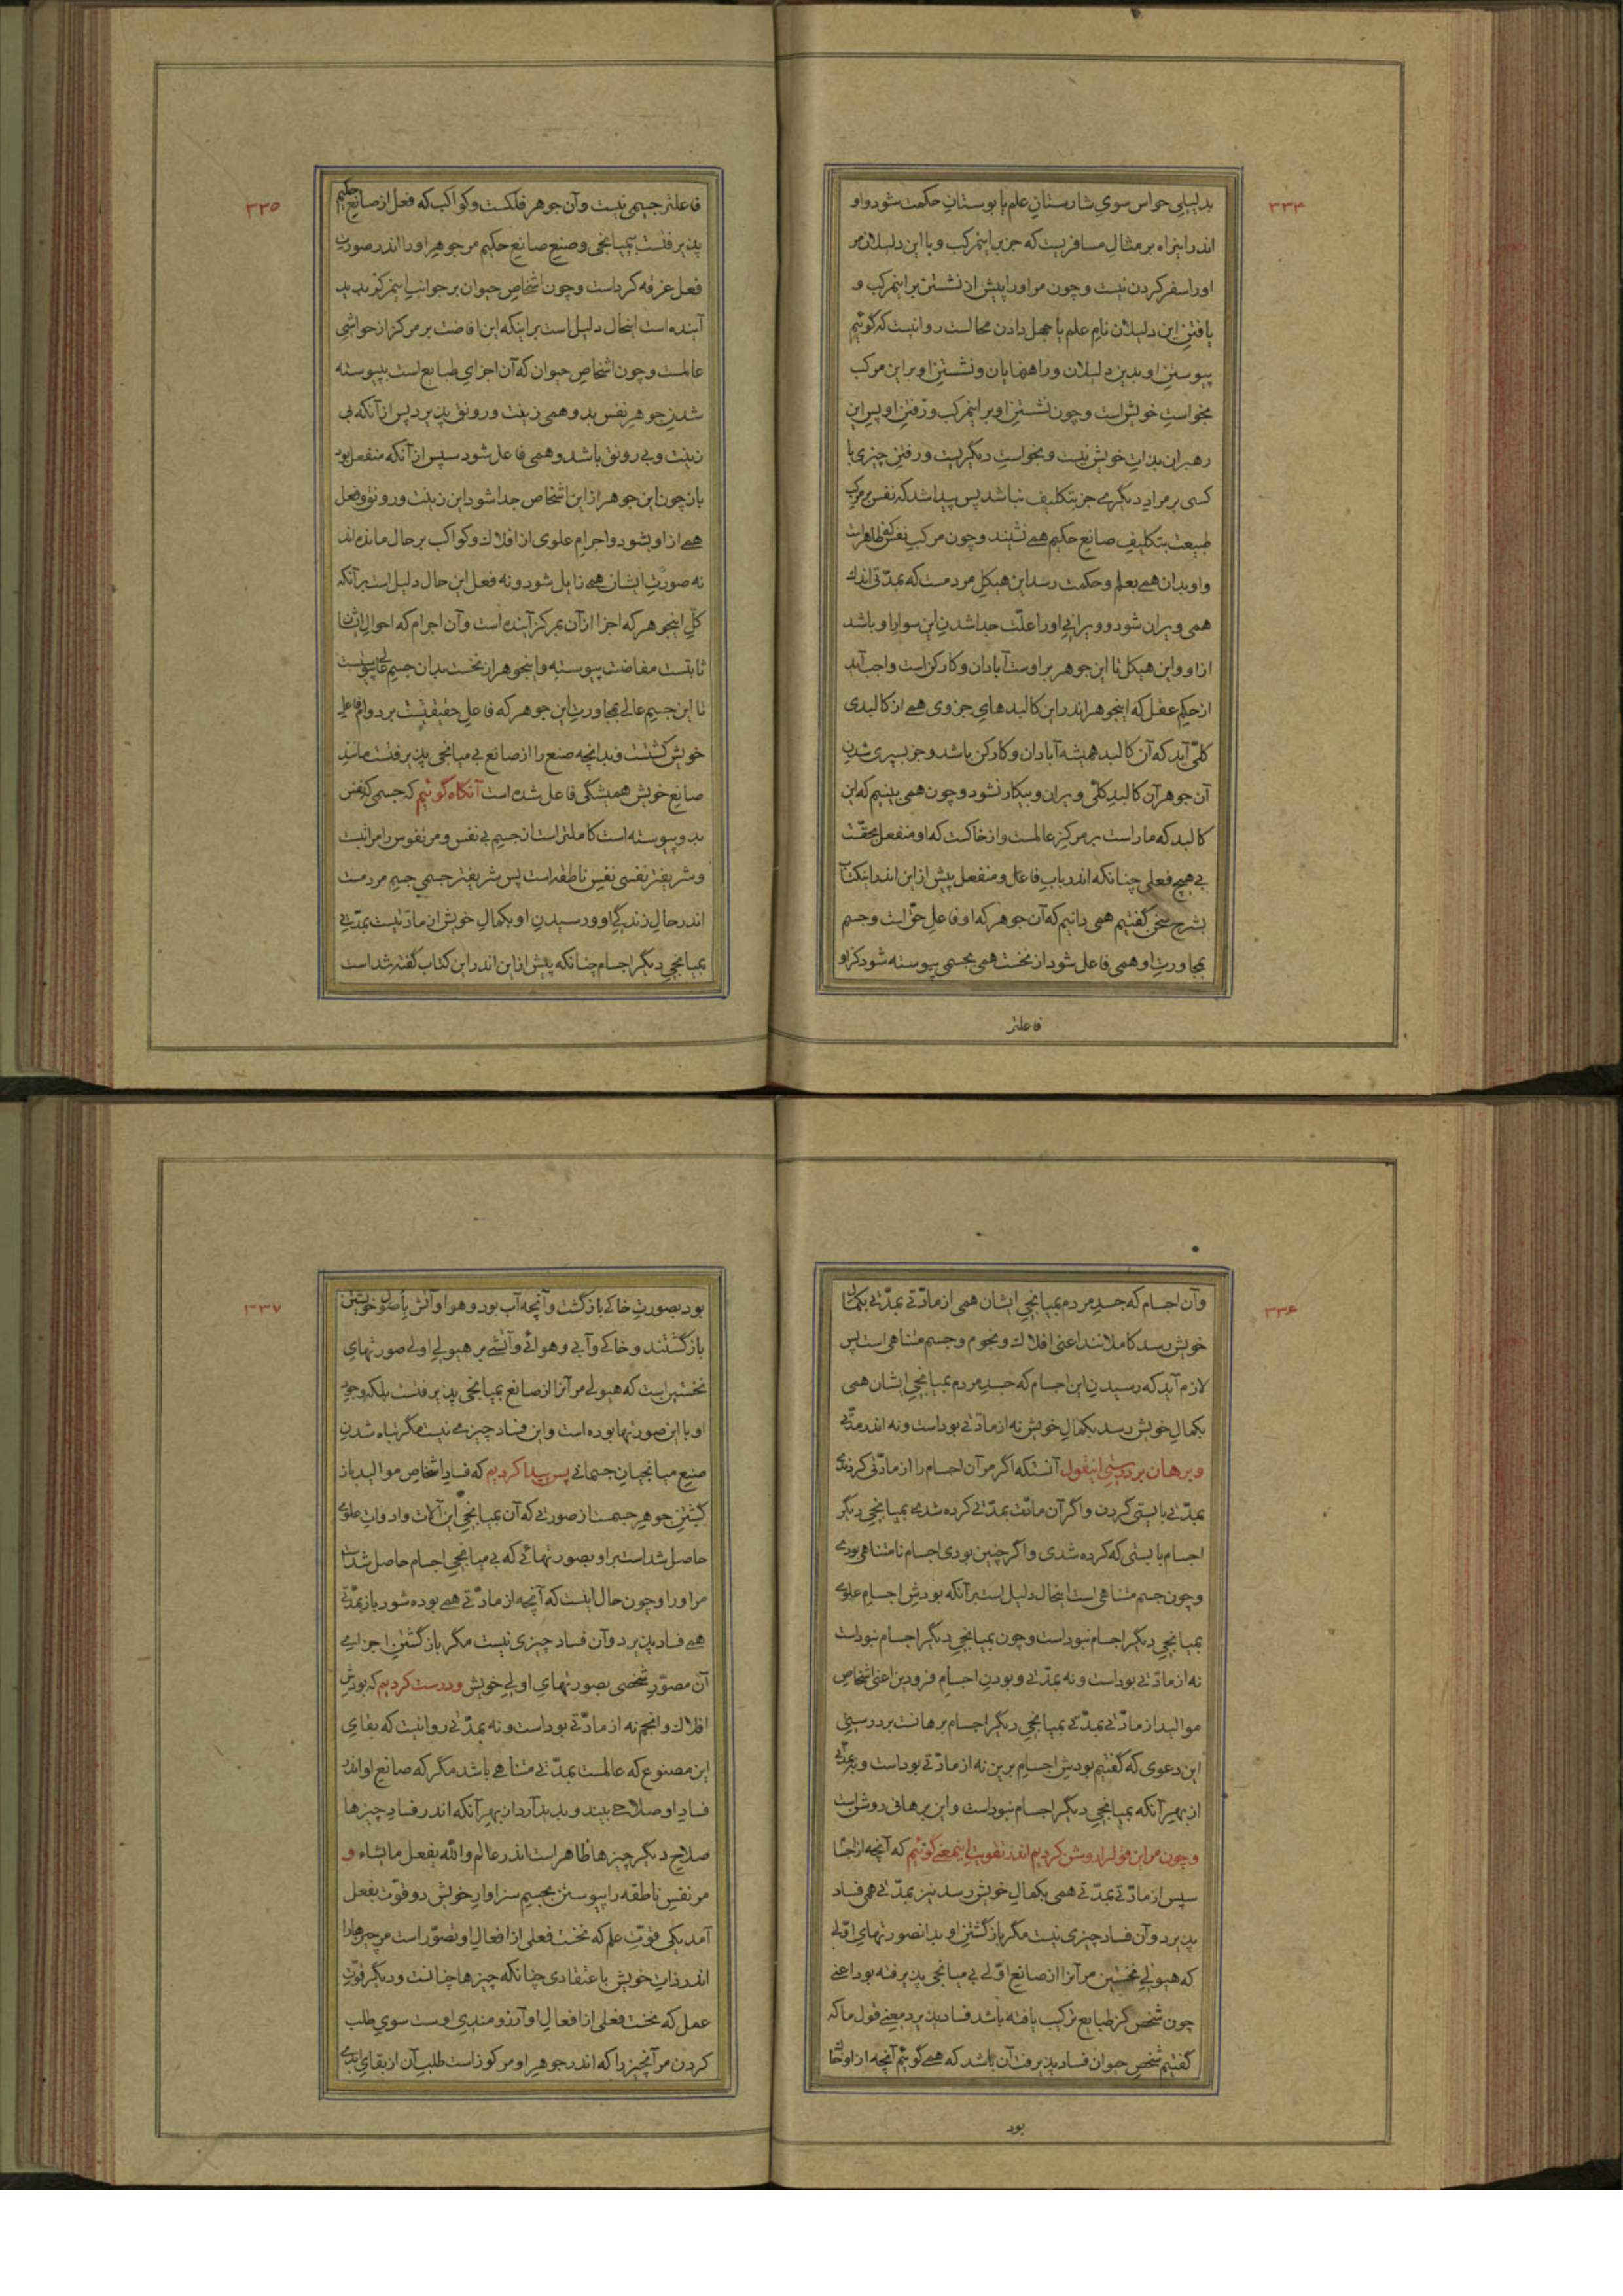 ۳۳۴
بدلیلی حواس سوی شارستان علم یا بوستان حکمت شود و او
اندر اینراه بر مثال مسافریست که جز بر اینمرکب و با این دلیلان مر
او را سفر کردن نیست و چون مر او را پیش از نشستن بر اینمرکب و
یافتن این دلیلان نام علم یا جهل دادن محالست روا نیست که گوئیم
پیوستن او بدین دلیلان و راهنمایان و نشستن او بر این مرکب
بخواست خویش است و چون نشستن او بر اینمرکب و رفتن او پس این
رهبران بذات خویش نیست و بخواست دیگریست و رفتن چیزی با
کسی بر مراد دیگرے جز بتکلیف نباشد پس پیدا شد که نفس بر مرکب
طبیعت بتکلیف صانع حکیم همے نشیند و چون مرکب نفس که ظاهر است
و او بدان همے بعلم و حکمت رسد این هیکل مردمست که بمدّتی اندك
همی ویران شود و ویرانیِ او را علّت جدا شدن این سوار او باشد
از او و این هیکل تا این جوهر بر اوست آبادان و کارکن است واجب آید
از حکم عقل که اینجوهر اندر این کالبدهای جزوی همے از کالبدی
کلّی آید که آن کالبد همیشه آبادان و کارکن باشد و جز بسپری شدن
آن جوهر آن کالبد کلّی ویران و بیکار نشود و چون همی بینیم که این
کالبد که ماراست بر مرکز عالمست و از خاکست که او منفعل بحقّست
بی هیچ فعلی چنانکه اندر باب فاعل و منفعل پیش از این اندر اینکتاب
بشرح سخن گفتیم همی دانیم که آن جوهر که او فاعل حقّ است و جسم
بمجاورت او همی فاعل شود از نخست همی بجسمی پیوسته شود کز او
فاعلتر
۳۳۵
فاعلتر جسمی نیست و آن جوهر فلکست و کواکب که فعل از صانع حکیم
پذیرفتست بیمیانجی و صنع صانع حکیم مر جوهر او را اندر صورت
فعل غرقه کرداست و چون اشخاص حیوان بر جوانب اینمرکز پدید
آینده است اینحال دلیل است بر اینکه این افاضت بر مرکز از حواشی
عالمست و چون اشخاص حیوان که آن اجزای طبایع است بپیوسته
شدن جوهر نفس بدو همی زینت و رونق پذیرد پس از آنکه بی
زینت و بی رونق باشد و همی فاعل شود سپس از آنکه منفعل بود
باز چون این جوهر از این اشخاص جدا شود این زینت و رونق و فعل
همے از او بشود و اجرام علوی از افلاك و کواکب بر حال مانده‌اند
نه صورت ایشان همے زایل شود و نه فعل این حال دلیل است بر آنکه
کلّ اینجوهر که اجزا از آن بمرکز آینده است و آن اجرام که احوال ایشان
ثابتست مفاضت پیوسته و اینجوهر از نخست بدان جسم عالی پیوستست
تا این جسم عالی بمجاورت این جوهر که فاعل حقیقتیست بر دوام فاعل
خویش گشتست و بدانچه صنع را از صانع بی میانجی پذیرفتست مانند
صانع خویش همیشگی فاعل شده است آنگاه گوئیم که جسمی که نفس
بدو پیوسته است کاملتر است از جسم بی نفس و مر نفوس را مراتبست
و شریفتر نفسی نفس ناطقه است پس شریفتر جسمی جسم مردمست
اندر حال زندگی او و رسیدن او بکمال خویش از مادّتیست بمدّتی
بمیانجی دیگر اجسام چنانکه پیش از این اندر این کتاب گفته شد است
۳۳۶
و آن اجسام که جسد مردم بمیانجی ایشان همی از مادّتی بمدّتی بکمال
خویش رسد کاملانند اعنی افلاك و نجوم و جسم متناهی است پس
لازم آید که رسیدن این اجسام که جسد مردم بمیانجی ایشان همی
بکمال خویش رسد بکمال خویش نه از مادّتی بوداست و نه اندر مدّتی
و برهان بر درستی اینقول آنستکه اگر مر آن اجسام را از مادّتی کردندی
بمدّتی بایستی کردن و اگر آن مادّت بمدّتی کرده شدی بمیانجی دیگر
اجسام بایستی که کرده شدی و اگر چنین بودی اجسام نامتناهی بودی
و چون جسم متناهی است اینحال دلیل است بر آنکه بودش اجسام علوی
بمیانجی دیگر اجسام نبوداست و چون بمیانجی دیگر اجسام نبوداست
نه از مادّتی بوداست و نه بمدّتی و بودن اجسام فرودین اعنی اشخاص
موالید از مادّتی بمدّتی بمیانجی دیگر اجسام برهانست بر درستی
این دعوی که گفتیم بودش اجسام برین نه از مادّتی بوداست و نه بمدّتی
از بهر آنکه بمیانجی دیگر اجسام نبوداست و این برهانی روشن است
و چون مر این قول را روشن کردیم اندر تقویت اینمعنی گوئیم که آنچه از اجسام
سپس از مادّتی بمدّتی همی بکمال خویش رسد نیز بمدّتی همی فساد
پذیرد و آن فساد چیزی نیست مگر باز گشتن او بدان صورتهای اوّلی
که هیولی نخستین مر آنرا از صانع اوّلی بی میانجی پذیرفته بود اعنی
چون شخص کز طبایع ترکیب یافته باشد فساد پذیرد معنی قول ما که
گفتیم شخص حیوان فساد پذیرفت آن باشد که همے گوئیم آنچه از او خاك
بود
۳۳۷
بود بصورت خاکی باز گشت و آنچه آب بود و هوا و آتش باصول خویشتن
باز گشتند و خاکی و آبی و هوائی و آتشی بر هیولی اولی صورتهای
نخستین است که هیولی مر آنرا از صانع بمیانجی پذیرفتست بلکه وجود
او با این صورتها بوده است و این فساد چیزی نیست مگر تباه شدن
صنع میانجیان جسمانی پس پیدا کردیم که فساد اشخاص موالید باز
گشتن جوهر جسمست از صورتی که آن بمیانجی این آلات و ادوات علوی
حاصل شد است بر او بصورتهائی که بی میانجی اجسام حاصل شد است
مر او را و چون حال اینست که آنچه از مادّتی همے بوده شود باز بمدّتی
همے فساد پذیرد و آن فساد چیزی نیست مگر باز گشتن اجزای
آن مصوّر شخصی بصورتهای اولی خویش و درست کردیم که بودش
افلاك و انجم نه از مادّتی بوداست و نه بمدّتی روا نیست که بقای
این مصنوع که عالمست بمدّتی متناهی باشد مگر که صانع او اندر
فساد او صلاحی بیند و پدید آرد از بهر آنکه اندر فساد چیزها
صلاح دیگر چیزها ظاهر است اندر عالم و الله یفعل ما یشاء و
مر نفس ناطقه را پیوستن بجسم سزاوار خویش دو قوّت بفعل
آمد یکی قوّت علم که نخست فعلی از افعال او تصوّر است مر چیزها را
اندر ذات خویش باعتقادی چنانکه چیزها چنانست و دیگر قوّت
عمل که نخست فعلی از افعال او آرزومندی اوست سوی طلب
کردن مر آنچیز را که اندر جوهر او مرکوز است طلب آن از بقای ابدی